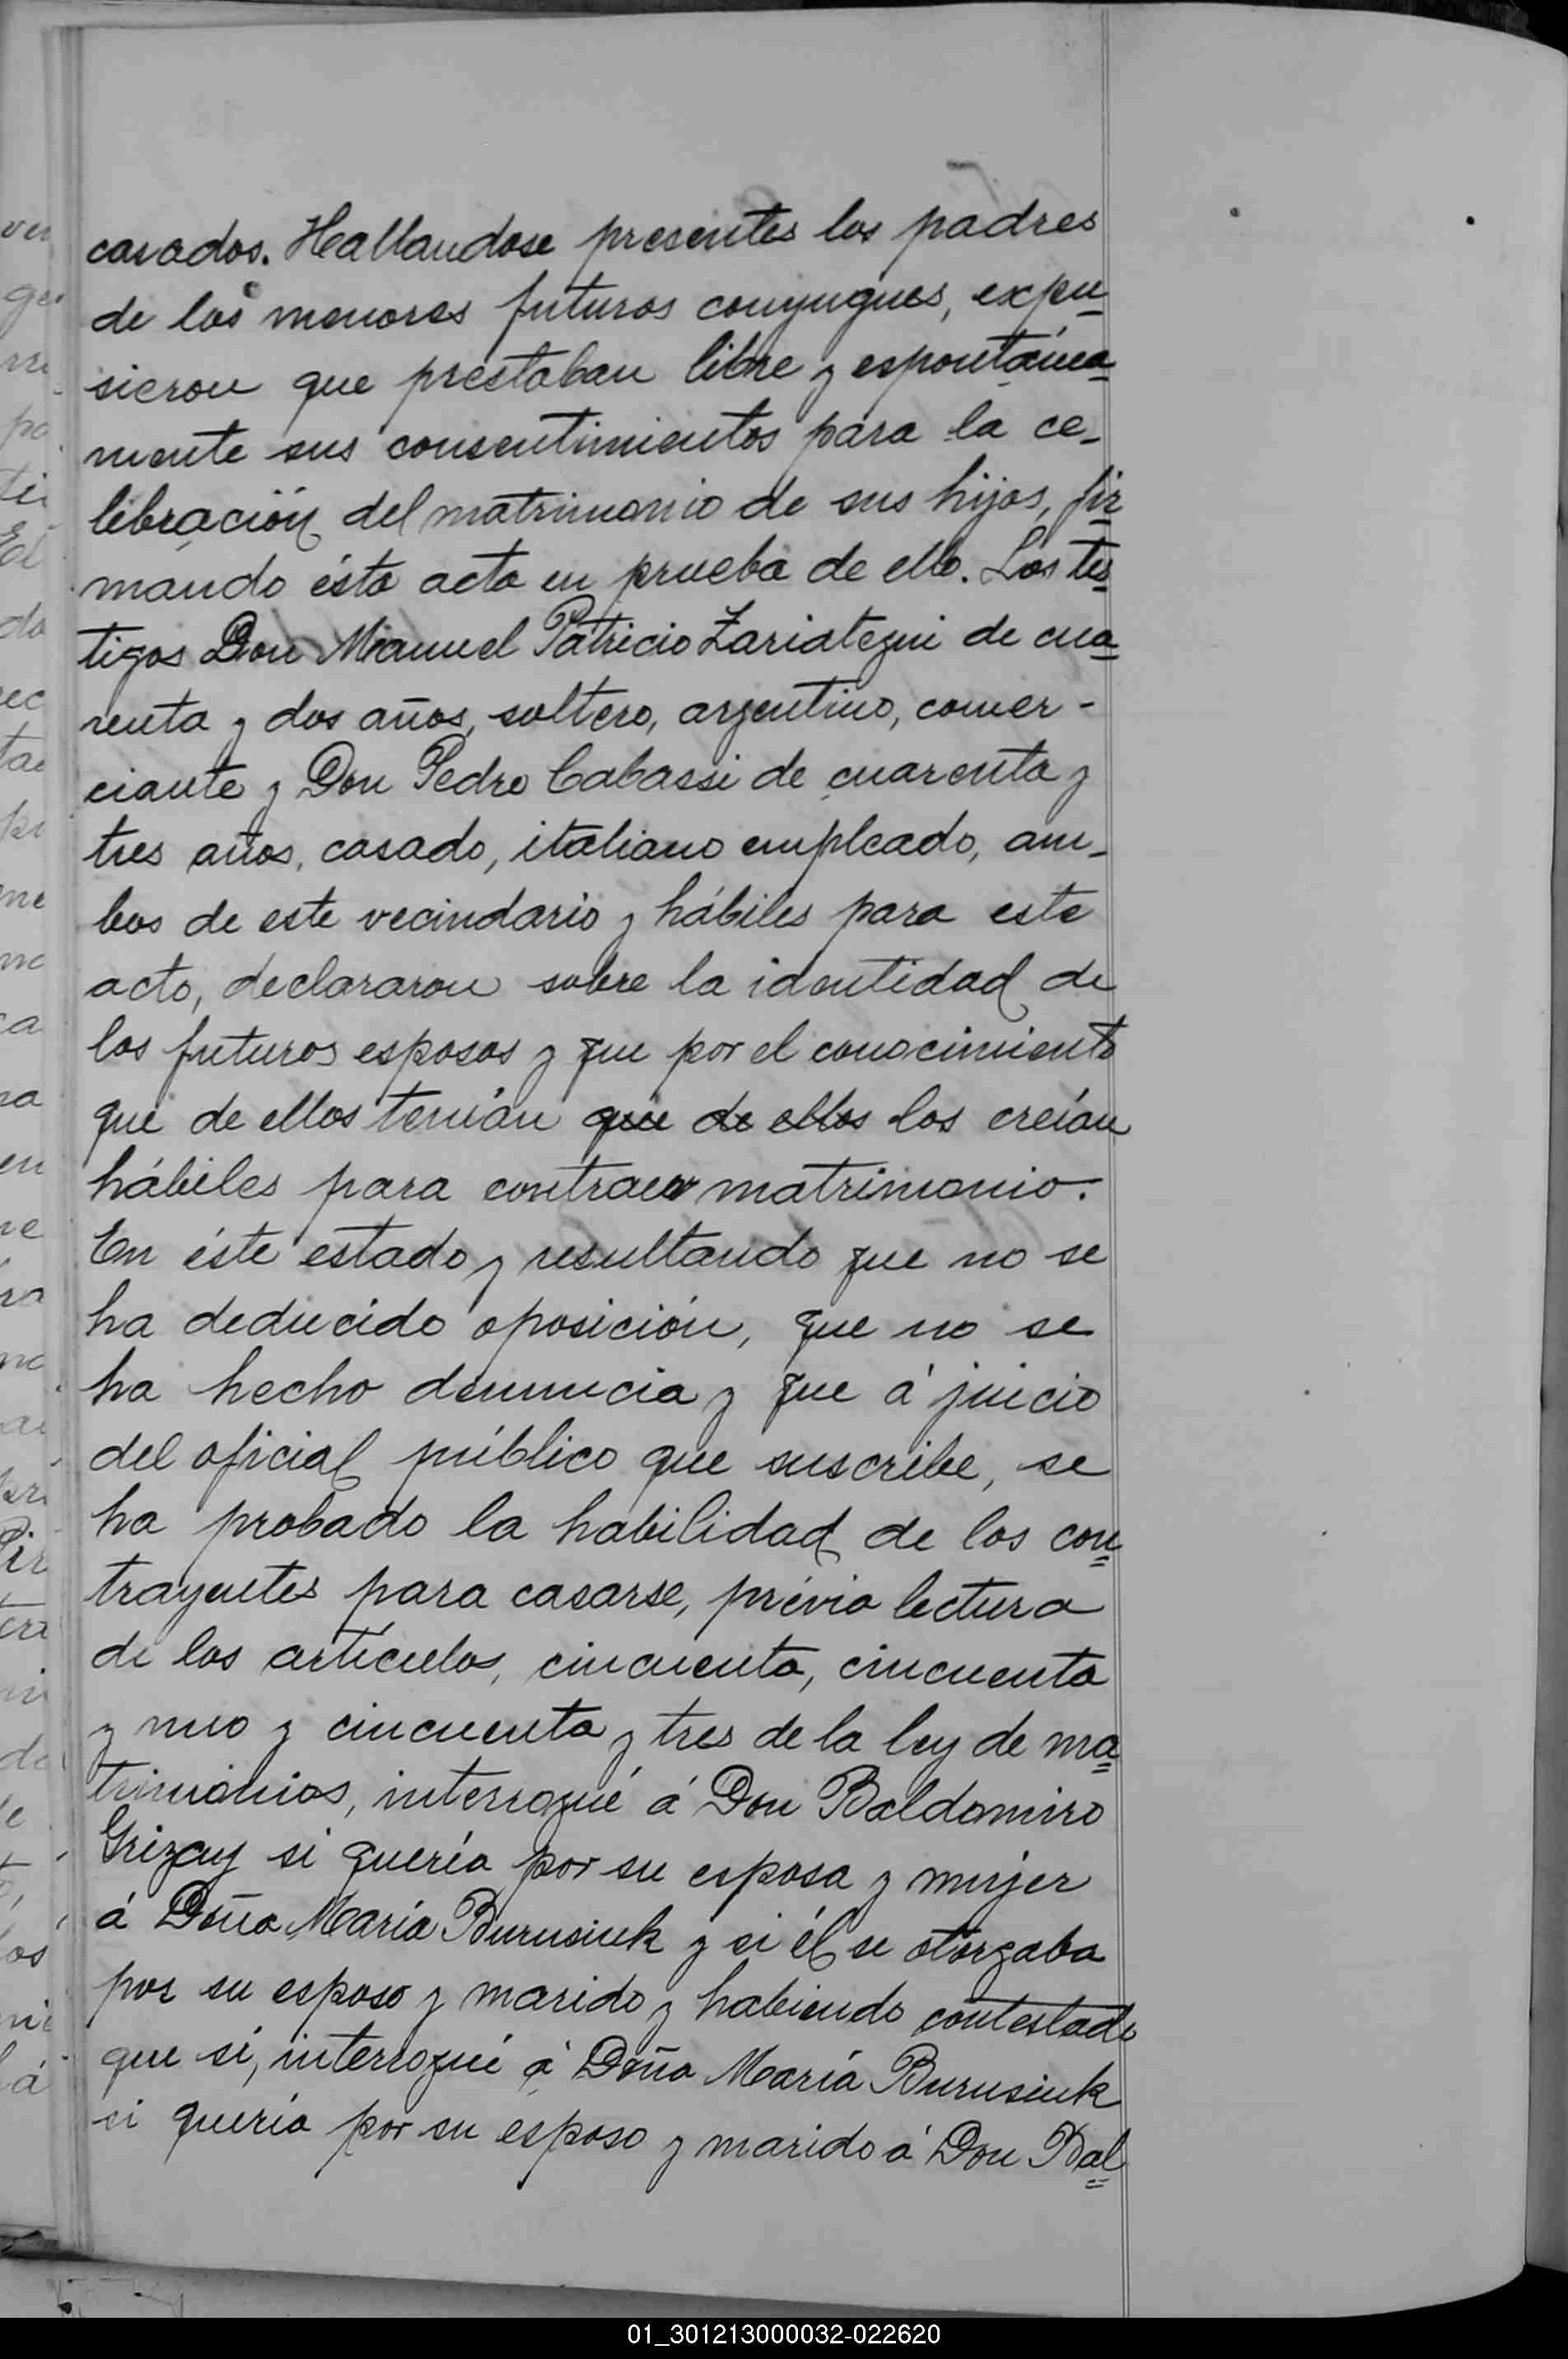 casados. Hallandose presentes los padres
de los menores futuros conyugues, expu=
sieron que prestaban libre y espontánea=
mente sus consentimientos para la ce-
lebración del matrimonio de sus hijos, fir=
mando ésta acta en prueba de ello. Los tes=
tigos Don Manuel Patricio Zariategui de cua=
renta y dos años, soltero, argentino, comer-
ciante y Don Pedro Cabassi de cuarenta y
tres años, casado, italiano empleado, am-
bos de este vecindario y hábiles para este
acto, declararon sobre la identidad de
los futuros esposos y que por el conocimiento
que de ellos tenían que de ellos los creían
hábiles para contraer matrimonio.
En éste estado y resultando que no se
ha deducido oposición, que no se
ha hecho denuncia y que á juicio
del oficial público que suscribe, se
ha probado la habilidad de los con=
trayentes para casarse, prévia lectura
de los artículos, cincuenta, cincuenta
y uno y cincuenta y tres de la ley de ma=
trimonios, interrogué á Don Baldomiro
Grizuy si quería por su esposa y mujer
á Doña María Burusiuk y si él se otorgaba
por su esposo y marido y habiendo contestado
que sí, interrogué á Doña María Burusiuk
si quería por su esposo y marido á Don Bal=
01_301213000032-022620